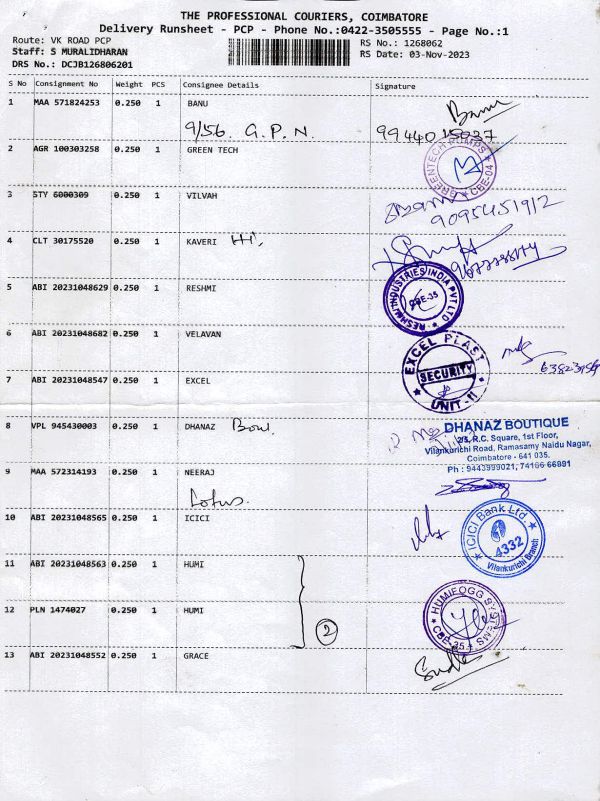 THE PROFESSIONAL COURIERS, COIMBATORE
Delivery Runsheet - PCP - Phone No.:0422-3505555 - Page No.:1
Route: VK ROAD PCP
RS No.: 1268062
Staff: S MURALIDHARAN
RS Date: 03-Nov-2023
DRS No.: DCJB126806201
S No Consignment No Weight PCS Consignee Details Signature
1 MAA 571824253 0.250 1 BANU Banu
9/56. G.P.N.
2 AGR 100303258 0.250 1 GREEN TECH
GREENTECH PUMPS CBE-04
3 STY 6000309 0.250 1 VILVAH
9095451912
4 CLT 30175520 0.250 1 KAVERI
5 ABI 20231048629 0.250 1 RESHMI
RESHMI INDUSTRIES INDIA PVT LTD CBE-35
6 ABI 20231048682 0.250 1 VELAVAN
7 ABI 20231048547 0.250 1 EXCEL
EXCEL PLAST SECURITY UNIT-II
8 VPL 945430003 0.250 1 DHANAZ
DHANAZ BOUTIQUE
2/3, R.C. Square, 1st Floor,
Vilankurichi Road, Ramasamy Naidu Nagar,
Coimbatore - 641 035.
Ph : 9443999021, 74166 66891
9 MAA 572314193 0.250 1 NEERAJ
Lotus.
10 ABI 20231048565 0.250 1 ICICI
ICICI Bank Ltd. 4332 Vilankurichi Branch
11 ABI 20231048563 0.250 1 HUMI
12 PLN 1474027 0.250 1 HUMI
2
HUMIEOGG SYSTEMS CBE-35
13 ABI 20231048552 0.250 1 GRACE